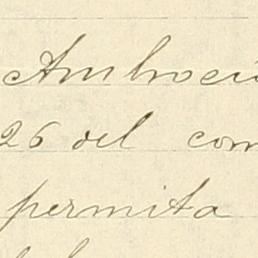 Ambroci
26 del com
permita